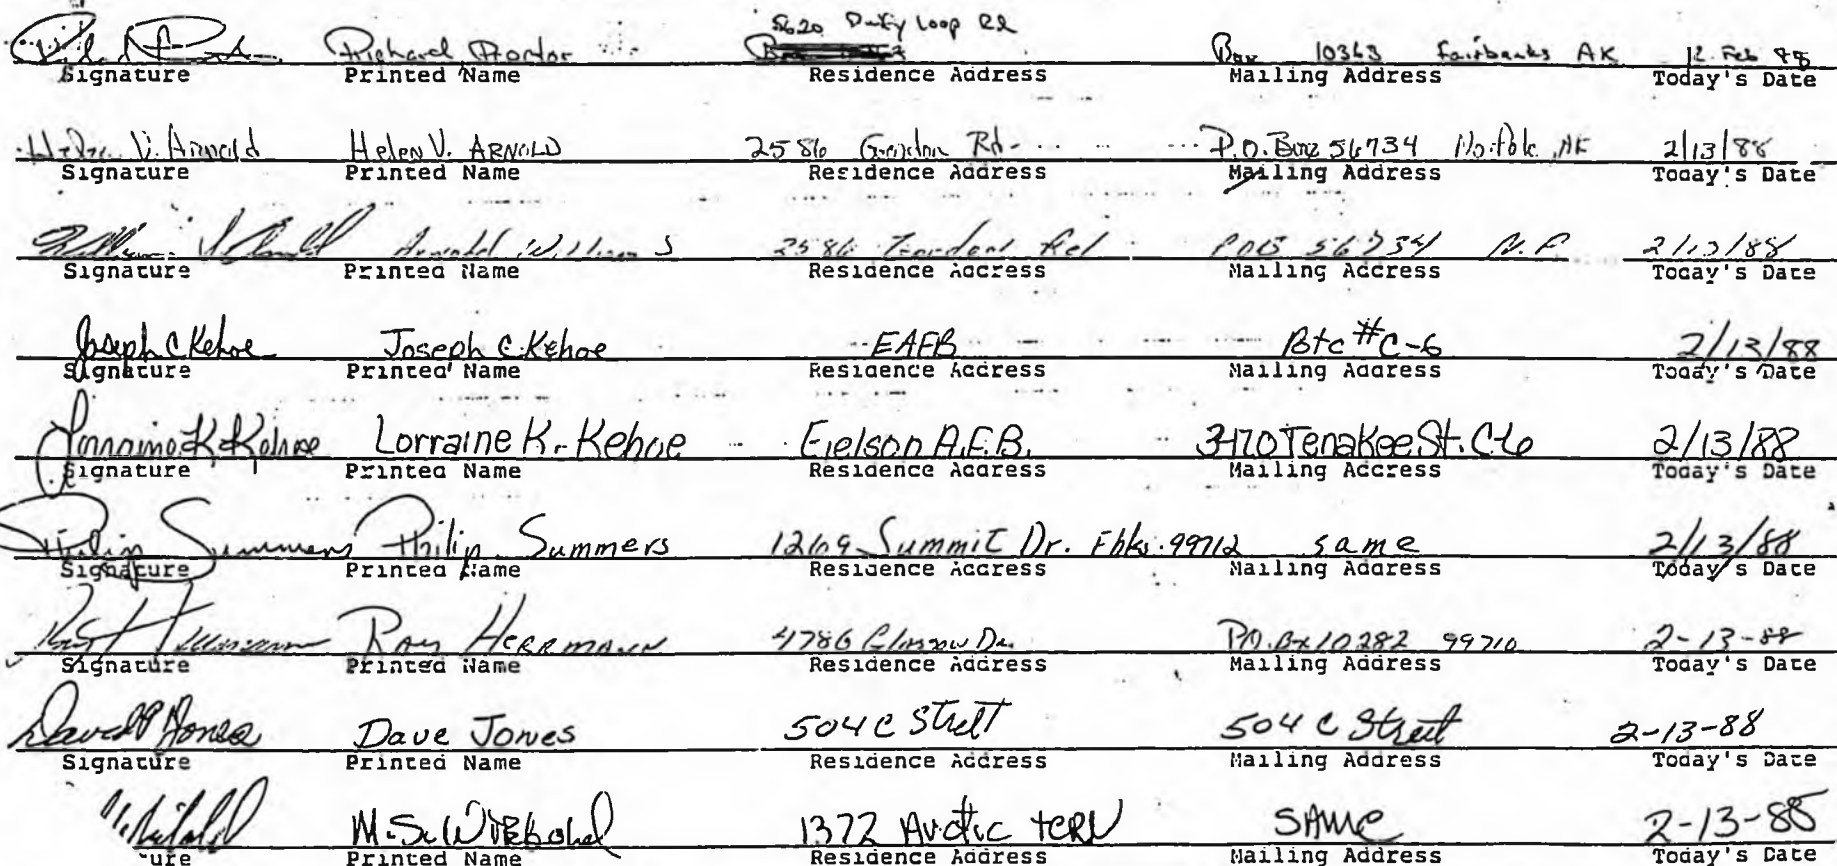 5620 Dufy Loop Rd
Richard Proctor Box 10363 Fairbanks AK 12 Feb 88
Signature Printed Name Residence Address Mailing Address Today's Date
Helen V. Arnold Helen V. ARNOLD 2586 Gordon Rd. P.O. Box 56734 No. Pole, AK 2/13/88
Signature Printed Name Residence Address Mailing Address Today's Date
William S Arnold Arnold William S 2586 Gordon Rd POB 56734 N.P. 2/13/88
Signature Printed Name Residence Address Mailing Address Today's Date
Joseph C Kehoe Joseph C. Kehoe EAFB #C-6 2/13/88
Signature Printed Name Residence Address Mailing Address Today's Date
Lorraine K Kehoe Lorraine K. Kehoe Eielson A.F.B. 3470 Tenakee St. C-6 2/13/88
Signature Printed Name Residence Address Mailing Address Today's Date
Philip Summers Philip Summers 1269 Summit Dr. Fbks. 99712 same 2/13/88
Signature Printed Name Residence Address Mailing Address Today's Date
Ray Herrmann Ray HERRMANN 4786 Glasgow Dr. P.O. Bx 10282 99710 2-13-88
Signature Printed Name Residence Address Mailing Address Today's Date
David P Jones Dave Jones 504 C Street 504 C Street 2-13-88
Signature Printed Name Residence Address Mailing Address Today's Date
M. S. 1372 Arctic tERN SAME 2-13-88
ure Printed Name Residence Address Mailing Address Today's Date